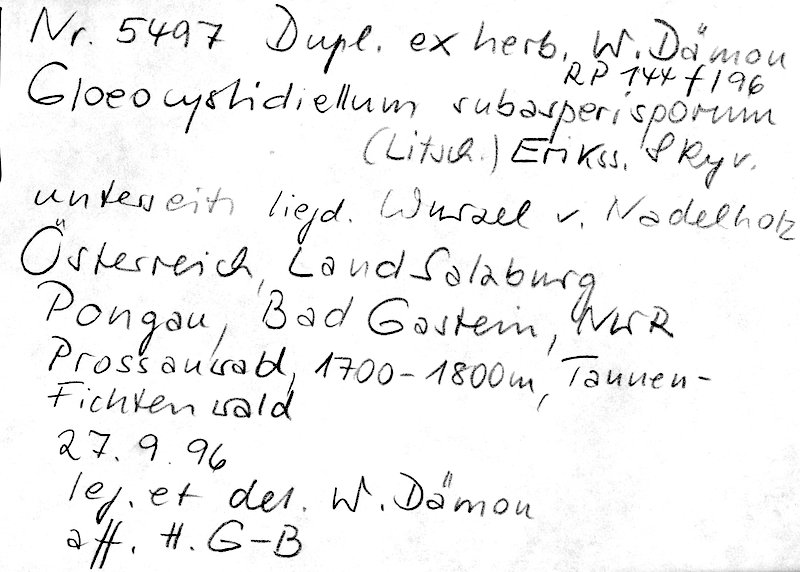 Nr. 5497 Dupl. ex herb. W. Dämon
RP 144 f 196
Gloeocystidiellum subasperisporum
(Litsch.) Erikss. & Ryv.
unterseits liegd. Wurzel v. Nadelholz
Österreich, Land Salzburg
Pongau, Bad Gastein, NWR
Prossauwald, 1700-1800m, Tannen-
Fichtenwald
27. 9. 96
leg. et det. W. Dämon
aff. H. G-B